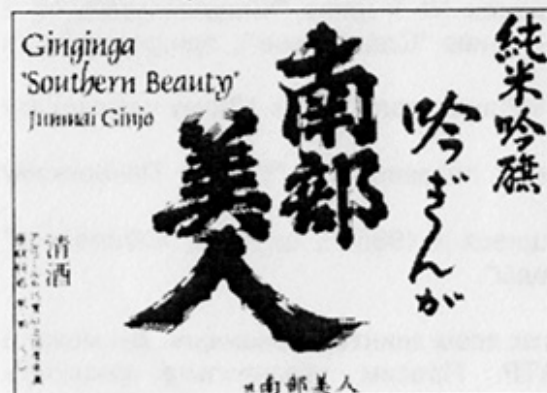 Ginginga
"Southern Beauty"
Junmai Ginjo
純米吟醸
吟ぎんが
南部
美人
清酒
南部美人